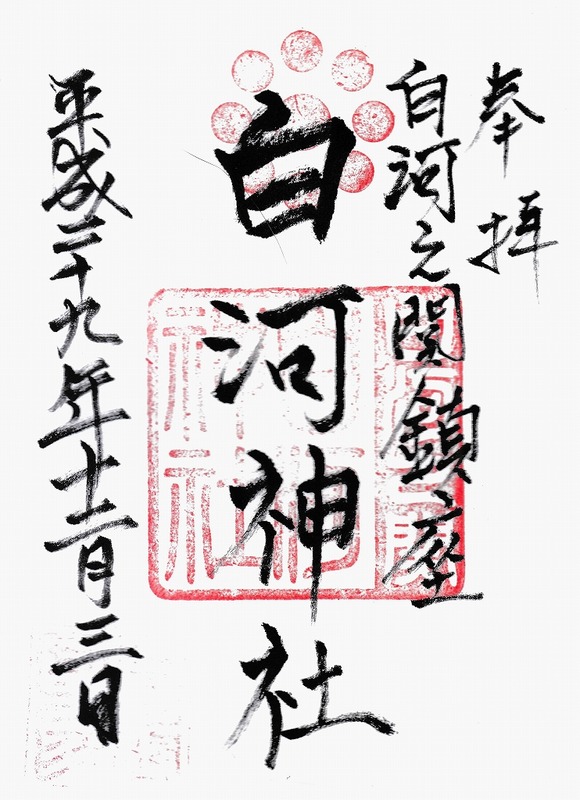 奉拝
白河之関鎮座
白河神社
平成二十九年十二月三日